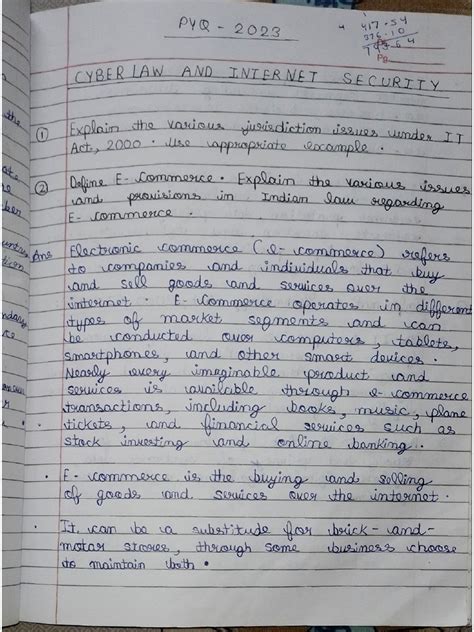 PYQ - 2023
417.54
376.10
CYBER LAW AND INTERNET SECURITY
① Explain the various jurisdiction issues under IT
Act, 2000. Use appropriate example.
② Define E-Commerce. Explain the various issues
and provisions in Indian law regarding
E-commerce.
Ans Electronic commerce (e-commerce) refers
to companies and individuals that buy
and sell goods and services over the
internet. E-Commerce operates in different
types of market segments and can
be conducted over computers, tablets,
smartphones, and other smart devices.
Nearly every imaginable product and
services is available through e-commerce
transactions, including books, music, plane
tickets, and financial services such as
stock investing and online banking.
• E-commerce is the buying and selling
of goods and services over the internet.
• It can be a substitute for brick-and-
motar stores, through some business choose
to maintain both.